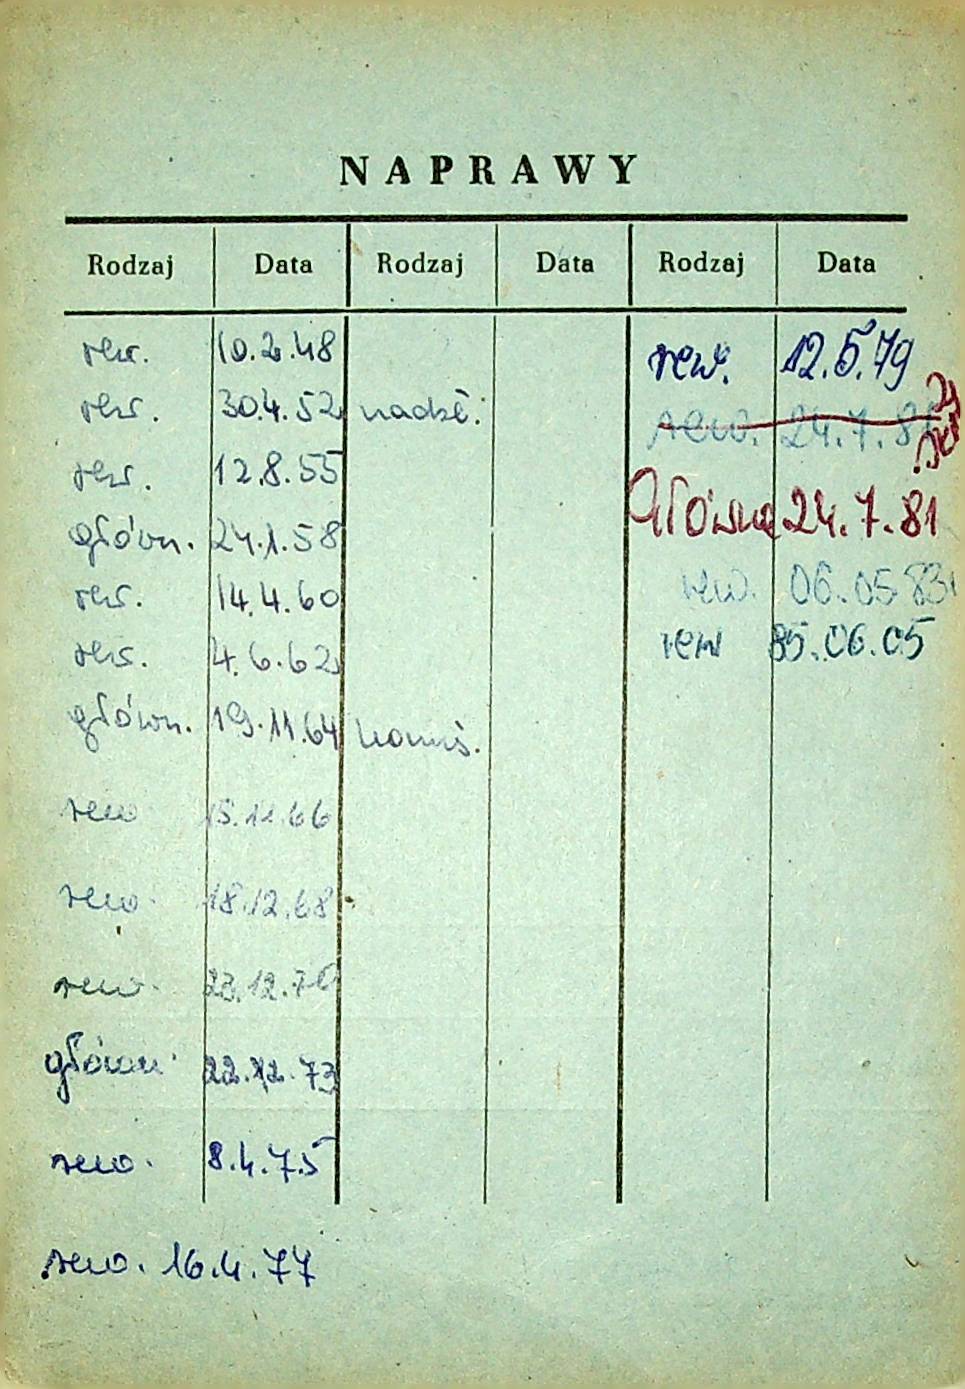 NAPRAWY
Rodzaj Data Rodzaj Data Rodzaj Data
rew. 10.2.48
rew. 30.4.52 nadzw.
rew. 12.8.55
główn. 24.1.58
rew. 14.4.60
rew. 4.6.62
główn. 19.11.64
rew 15.12.66
rew. 18.12.68
rew. 23.12.70
główn. 22.12.73
rew. 8.4.75
rew. 16.4.77
rew. 12.5.79
rew. 24.7.81
Główna 24.7.81
rew. 06.05 83
rew 85.06.05